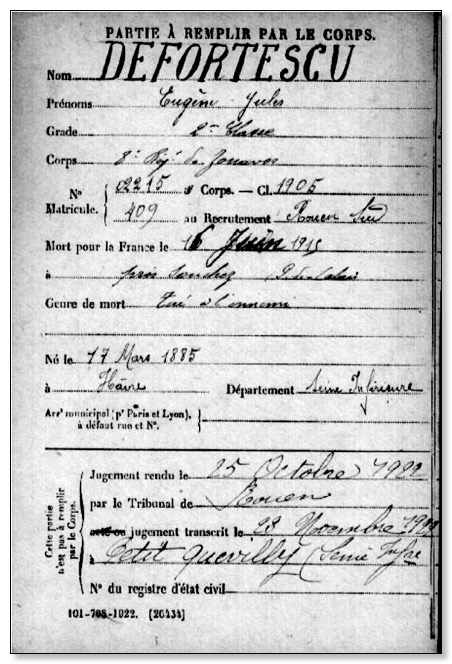 PARTIE À REMPLIR PAR LE CORPS.
Nom DEFORTESCU
Prénoms Eugène Jules
Grade 2me Classe
Corps 8e Régt de Zouaves
No Matricule. { 02215 au Corps. — Cl. 1905
409 au Recrutement Rouen Sud
Mort pour la France le 16 Juin 1915
à près Souchez P. de Calais
Genre de mort Tué à l'ennemi
Né le 17 Mars 1885
à Hâvre Département Seine Inférieure
Arrt municipal (pr Paris et Lyon), à défaut rue et No.
Cette partie n'est pas à remplir par le Corps.
Jugement rendu le 25 Octobre 1922
par le Tribunal de Rouen
jugement transcrit le 23 Novembre 1922
à Petit Quevilly (Seine Infre
No du registre d'état civil
101-708-1922. [26434]